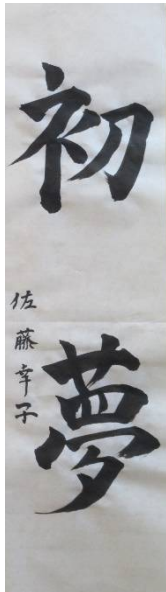 初夢
佐藤幸子